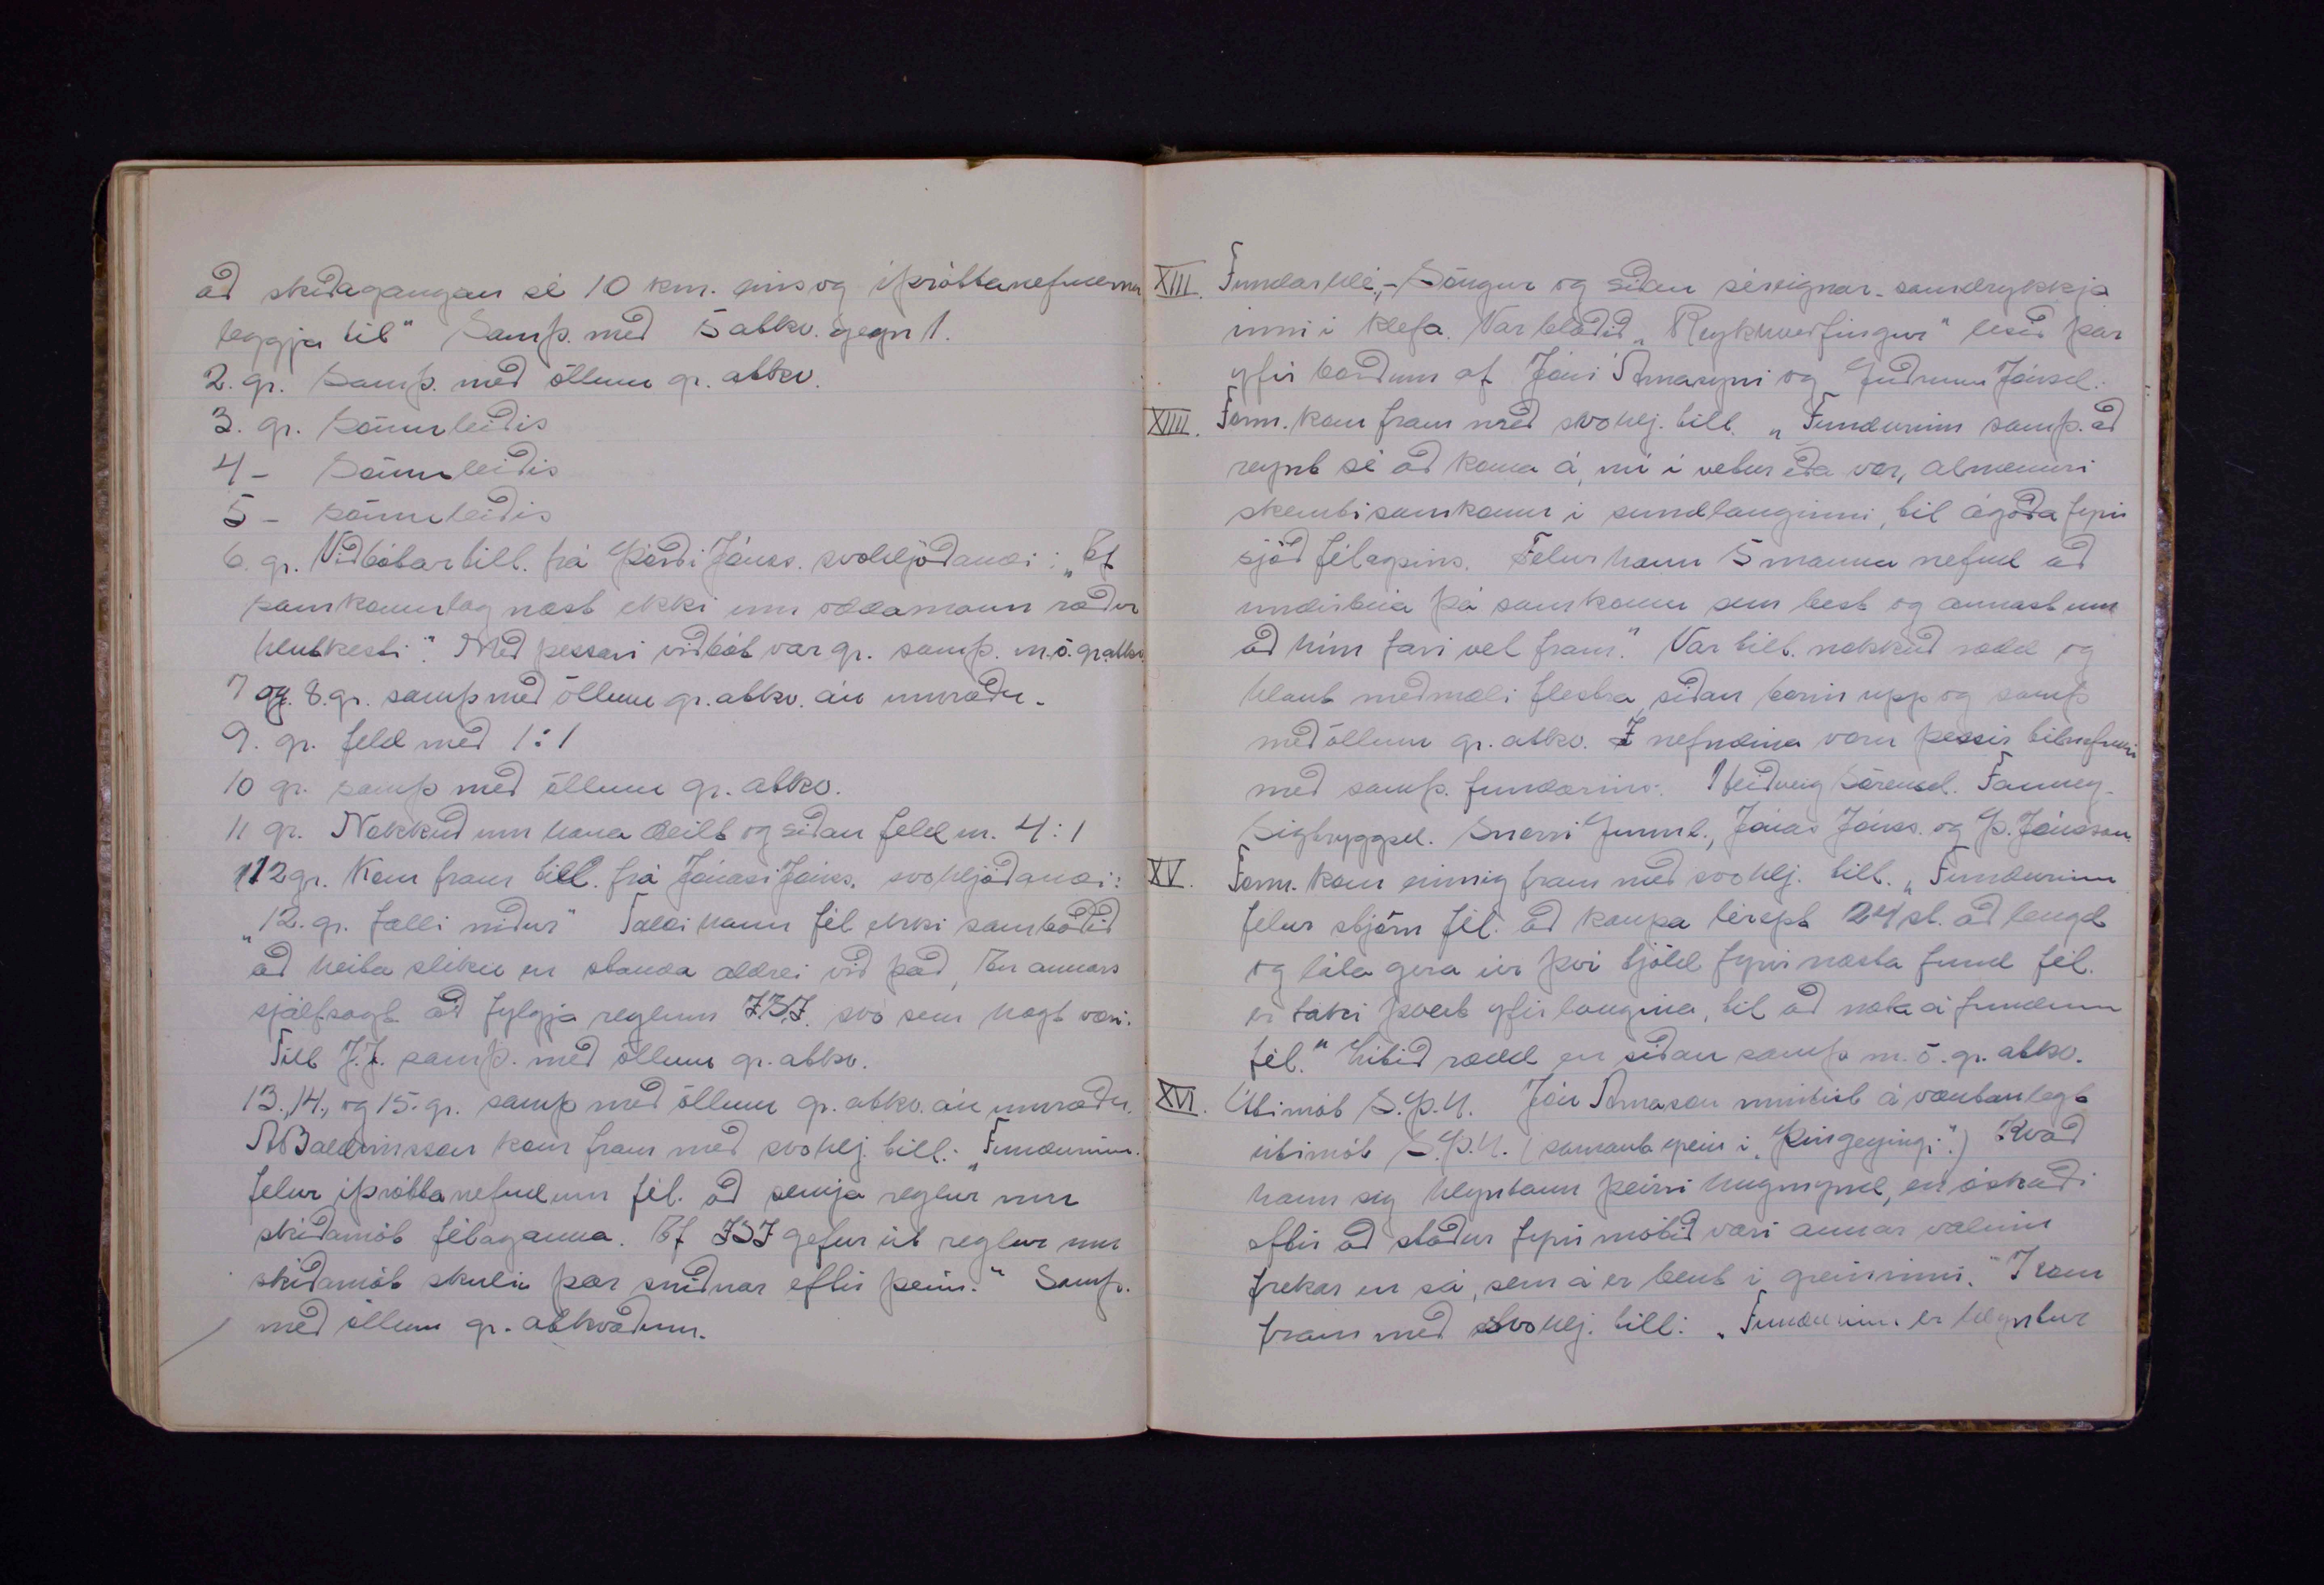 að skíðagangan sé 10 km. eins og íþróttanefndirnar
leggja til“ Samþ. með 5 atkv. gegn 1.
2. gr. Samþ. með öllum gr. atkv.
3. gr. Sömuleiðis
4 - Sömuleiðis
5 - Sömuleiðis
6. gr. Viðbótartill. frá Þórði Jónss. svohljóðandi: „Ef
samkomulag næst ekki um oddamann ræður
hlutkesti“. Með þessari viðbót var gr. samþ. m. ö. gr. atkv.
7 og 8. gr. samþ með öllum gr. atkv. án umræðu.
9. gr. feld með 1:1
10 gr. samþ með öllum gr. atkv.
11 gr. Nokkuð um hana deilt og síðan feld m. 4:1
12 gr. Kom fram till. frá Jónasi Jónss. svohljóðandi:
„12. gr. falli niður“ Taldi hann fél. ekki sambóðið
að heita slíku en standa aldrei við það, En annars
sjálfsagt að fylgja reglum ÍSÍ. svo sem hægt væri.
Till J.J. samþ. með öllum gr. atkv.
13., 14., og 15. gr. samþ með öllum gr. atkv. án umræðu.
A Baldvinsson kom fram með svohlj. till.: „Fundurinn
felur íþróttanefndum fél. að semja reglur um
skíðamót félaganna. Ef ÍSÍ gefur út reglur um
skíðamót skulu þær sniðnar eftir þeim.“ Samþ.
með öllum gr. atkvæðum.
XIII. Fundarhlé, - Söngur og síðan sérvignar - samdrykkja
inni í klefa. Var blaðið „Reykhverfingur“ lesið þar
yfir borðum af Jóni Árnasyni og Guðrúnu Jónsd.
XIIII. Form. kom fram með svohlj. till. „Fundurinn samþ. að
reynt sé að koma á, nú í vetur eða vor, almennri
skemtisamkomu í sundlauginni, til ágóða fyrir
sjóð félagsins. Felur hann 5 manna nefnd að
undirbúa þá samkomu sem best og annast um
að hún fari vel fram.“ Var till. nokkuð rædd og
hlaut meðmæli flestra, síðan borin upp og samþ
með öllum gr. atkv. Í nefndina voru þessir tilnefndir
með samþ. fundarins: Heiðveig Sörensd. Fanney
Sigtryggsd. Snorri Gunnl., Jónas Jónss. og Þ. Jónsson.
XV. Form. kom einnig fram með svohlj. till. „Fundurinn
felur stjórn fél. að kaupa léreft 24 st. að lengd
og láta gera úr því tjöld fyrir næsta fund fél.
er taki þvert yfir laugina, til að nota á fundum
fél.“ Lítið rædd en síðan samþ m. ö. gr. atkv.
XVI. Útimót S.Þ.U. Jón Árnason mintist á væntanlegt
útimót S.Þ.U. (samanb grein í „Þingeyingi“.) Kvað
hann sig hlyntann þeirri hugmynd, en óskaði
eftir að staður fyrir mótið væri annar valinn
frekar en sá, sem á er bent í greininni. “ J kom
fram með svohlj. till: „Fundurinn er hlyntur